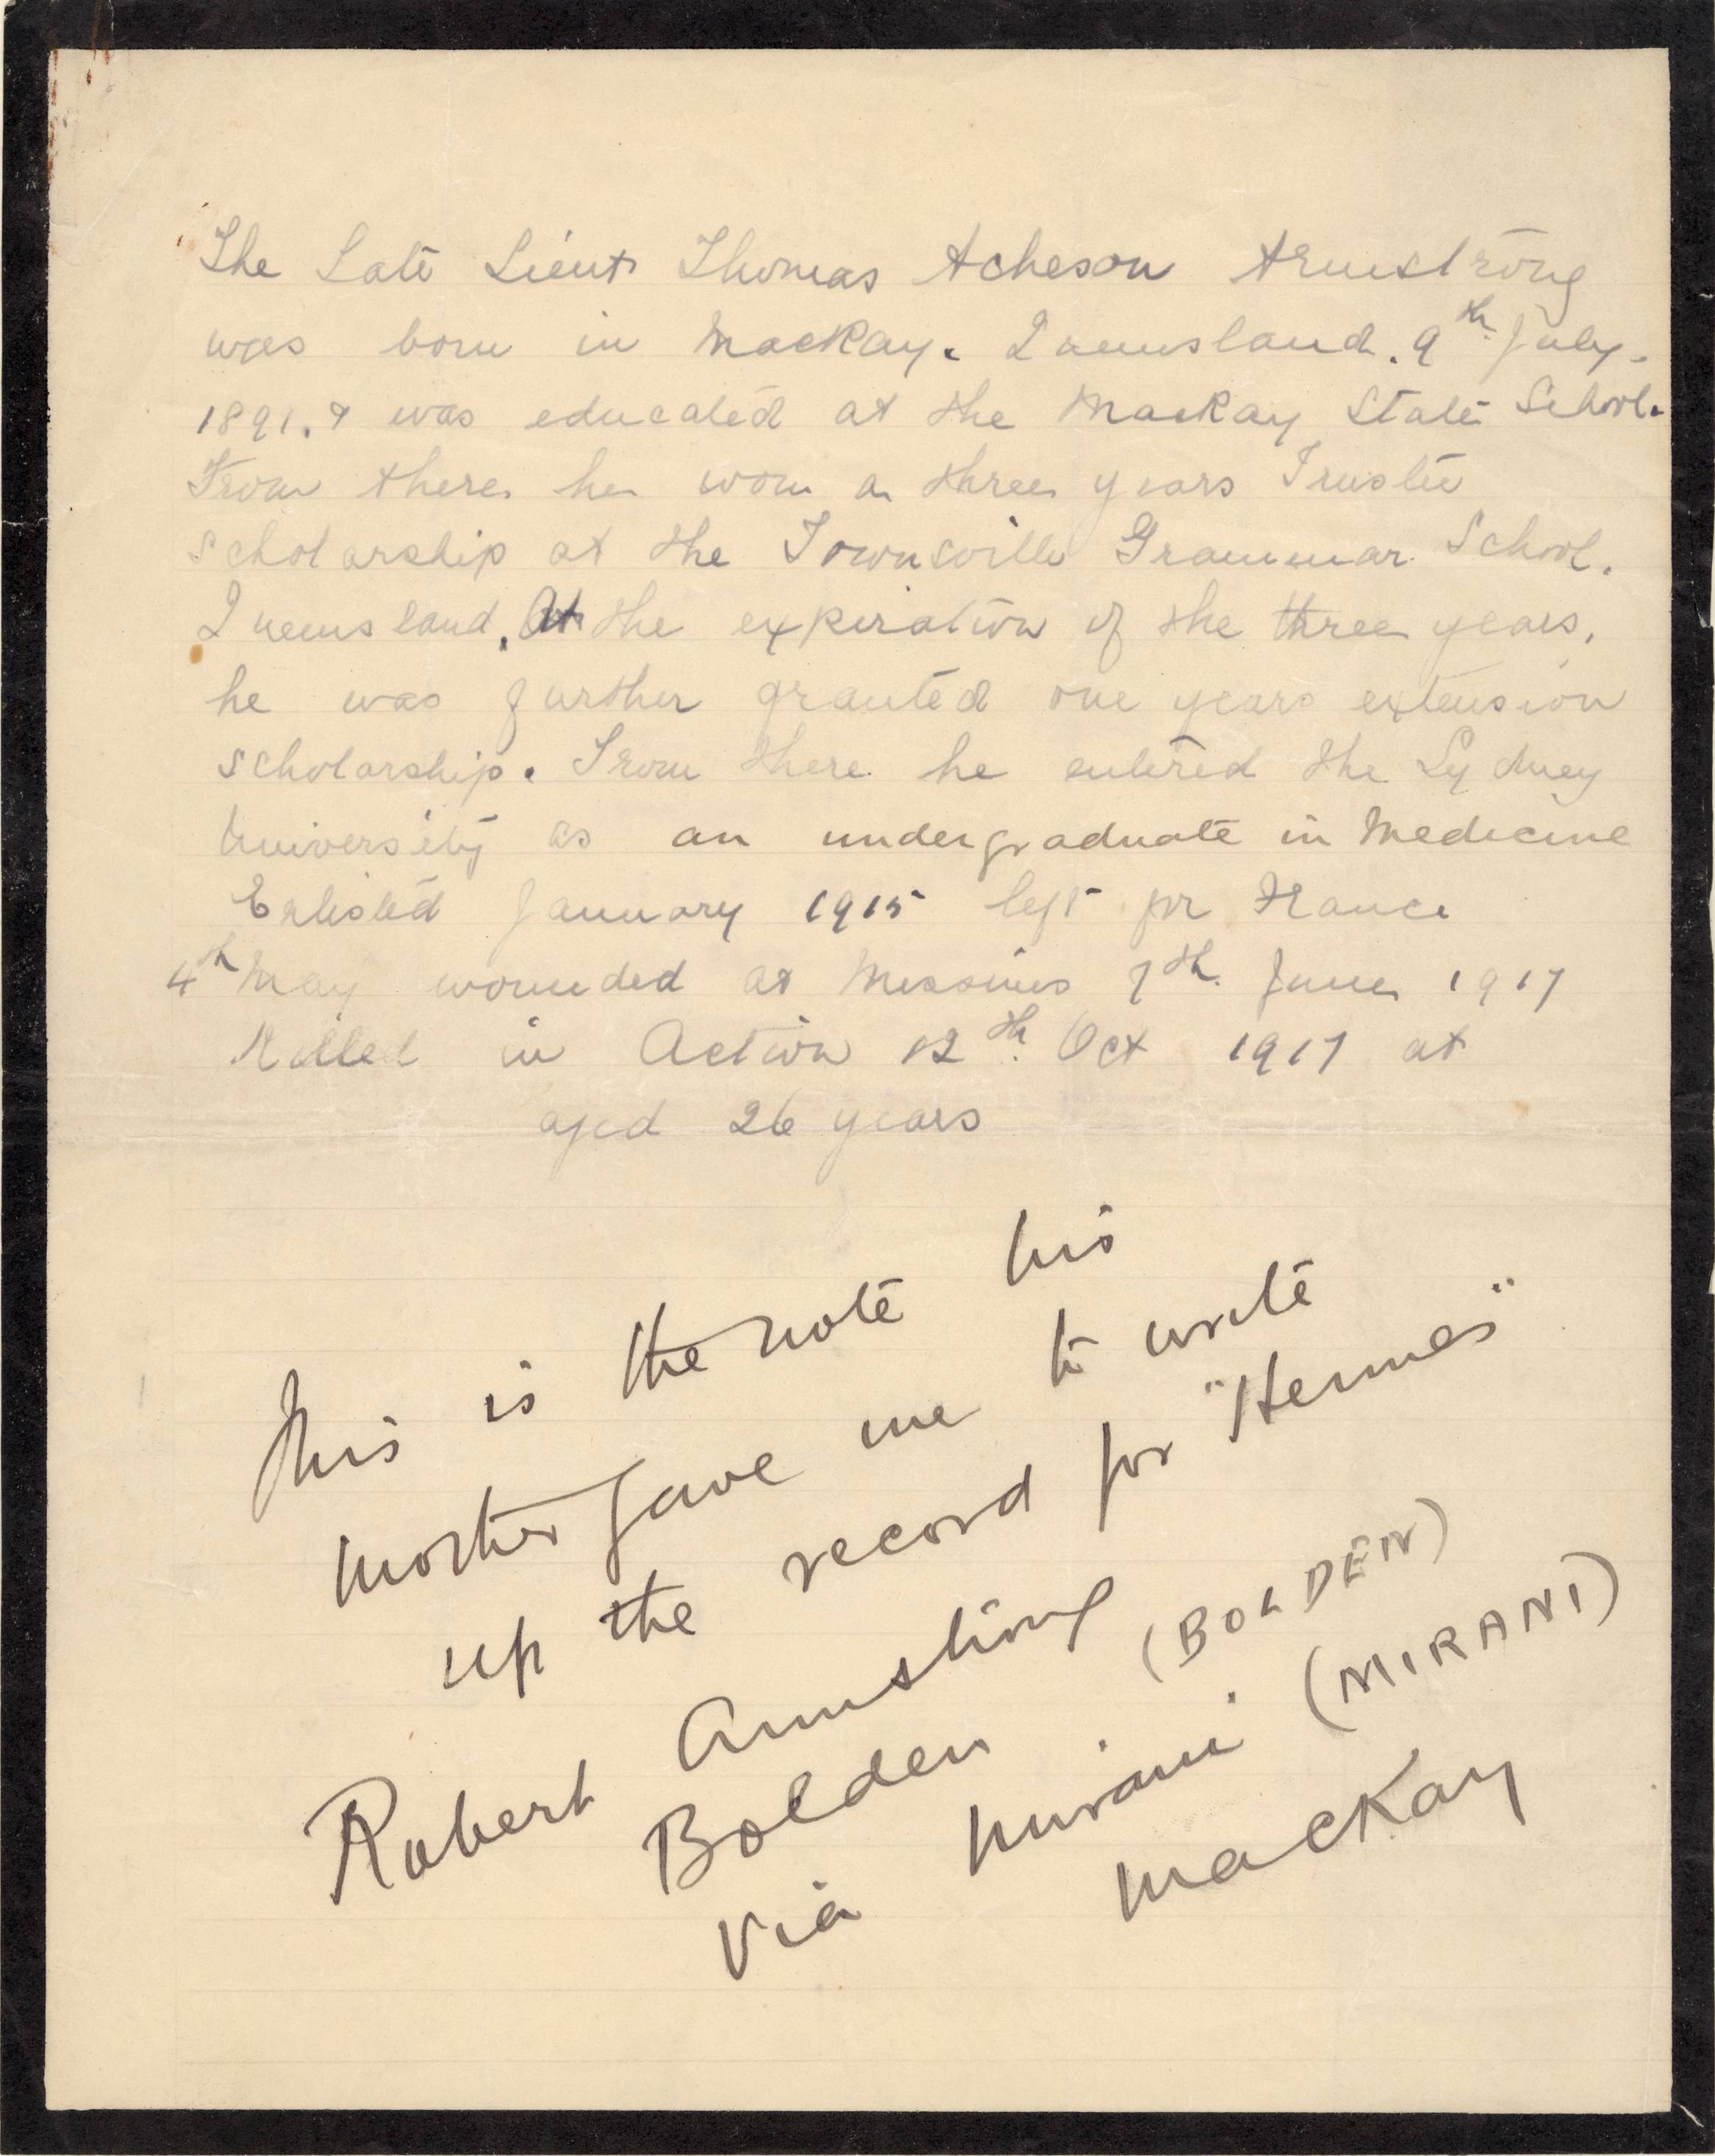 The Late Lieut Thomas Acheson Armstrong
was born in Mackay. Queensland. 9th July.
1891. & was educated at the Mackay State School.
From there he won a three years Trustee
scholarship at the Townsville Grammar School.
Queensland. At the expiration of the three years,
he was further granted one years extension
scholarship. From there he entered the Sydney
University as an undergraduate in Medicine
Enlisted January 1915 left for France
4th May wounded at Messines 7th June 1917
Killed in Action 12th Oct 1917 at
aged 26 years
This is the note his
mother gave me to write
up the record for "Hermes"
Robert Armstrong
Bolden (BOLDEN)
via Mirani (MIRANI)
Mackay